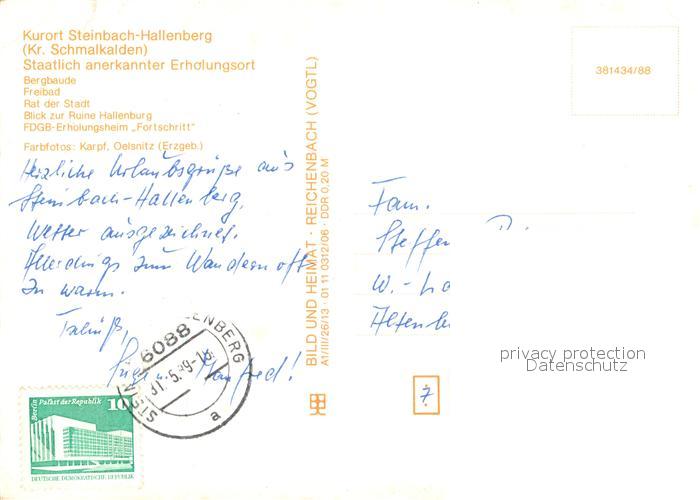 Kurort Steinbach-Hallenberg
(Kr. Schmalkalden)
Staatlich anerkannter Erholungsort
Bergbaude
Freibad
Rat der Stadt
Blick zur Ruine Hallenburg
FDGB-Erholungsheim „Fortschritt"
Farbfotos: Karpf, Oelsnitz (Erzgeb.)
Herzliche Urlaubsgrüße aus
Steinbach-Hallenberg.
Wetter ausgezeichnet.
Allerdings zum Wandern oft
zu warm.
Tschüß,
Manfred!
BILD UND HEIMAT · REICHENBACH (VOGTL)
A1/III/26/13 · 01 11 0312/06 · DDR 0,20 M
381434/88
Fam.
Steffen
W.-
privacy protection
Datenschutz
7
6088
ENBERG
31.-5.89-18
a
Berlin Palast der Republik 10
DEUTSCHE DEMOKRATISCHE REPUBLIK